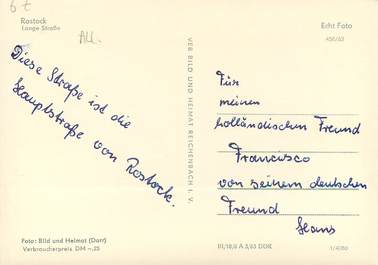 6t
Rostock
Lange Straße
All.
Echt Foto
456/63
Diese Straße ist die
Hauptstraße von Rostock.
VEB BILD UND HEIMAT REICHENBACH I. V.
Für
meinen
holländischen Freund
Francisco
von seinem deutschen
Freund
Hans
Foto: Bild und Heimat (Darr)
Verbraucherpreis DM –,25
III/18/6 A 3/63 DDR